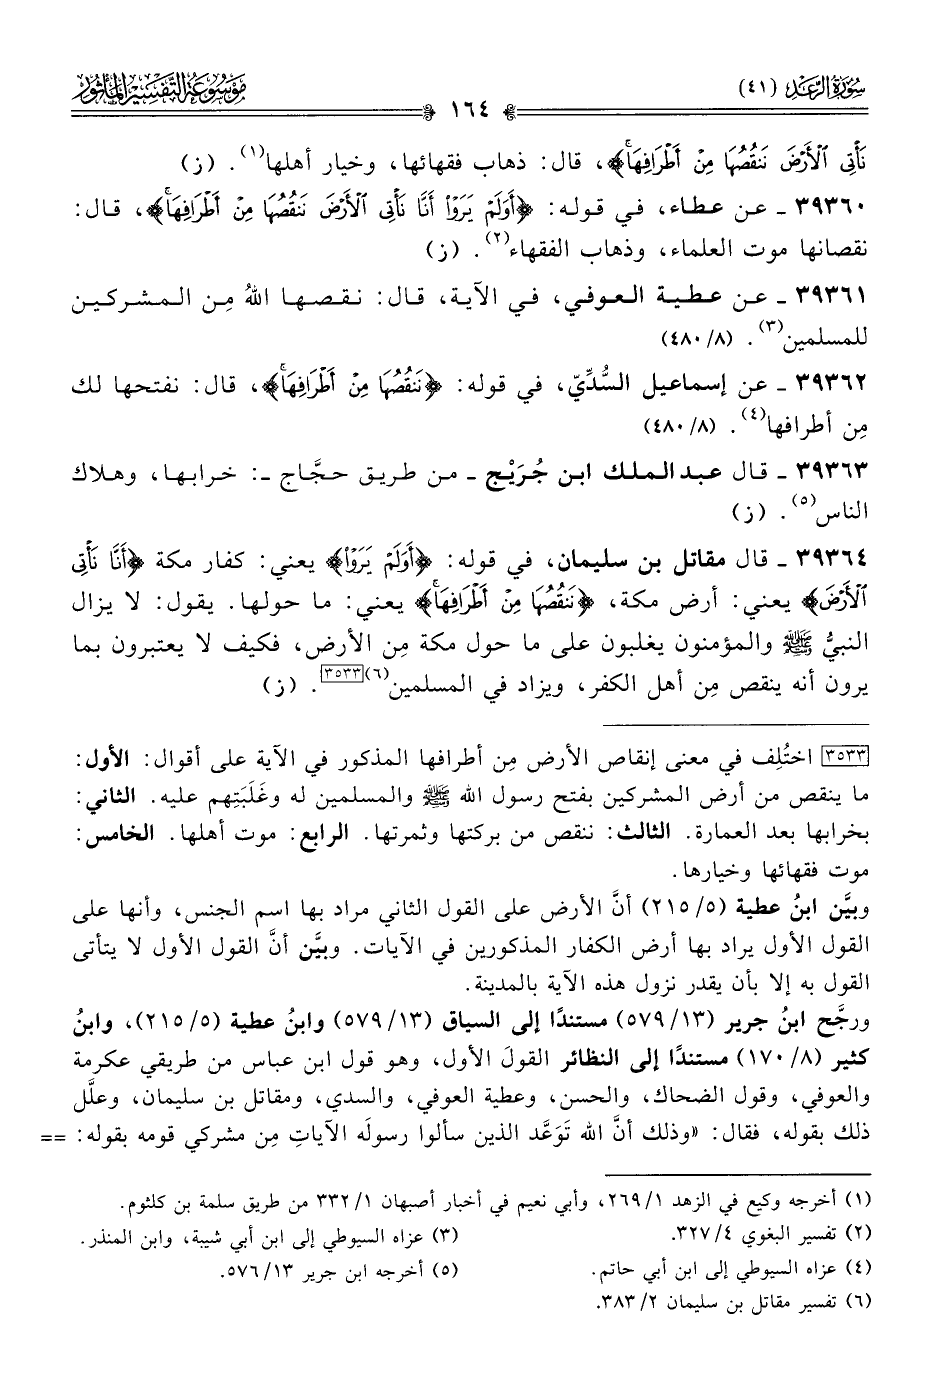 سُورَةُ الرَّعْدِ (٤١)
موسوعة التفسير المأثور
١٦٤
نَأْتِي الْأَرْضَ نَنقُصُهَا مِنْ أَطْرَافِهَا﴾، قال: ذهاب فقهائها، وخيار أهلها(١). (ز)
٣٩٣٦٠ ـ عن عطاء، في قوله: ﴿أَوَلَمْ يَرَوْا أَنَّا نَأْتِي الْأَرْضَ نَنقُصُهَا مِنْ أَطْرَافِهَا﴾، قال:
نقصانها موت العلماء، وذهاب الفقهاء(٢). (ز)
٣٩٣٦١ ـ عن عطية العوفي، في الآية، قال: نقصها اللهُ مِن المشركين
للمسلمين(٣). (٤٨٠/٨)
٣٩٣٦٢ ـ عن إسماعيل السُّدِّيّ، في قوله: ﴿نَنقُصُهَا مِنْ أَطْرَافِهَا﴾، قال: نفتحها لك
مِن أطرافها(٤). (٤٨٠/٨)
٣٩٣٦٣ ـ قال عبد الملك ابن جُرَيْج ـ من طريق حجَّاج ـ: خرابها، وهلاك
الناس(٥). (ز)
٣٩٣٦٤ ـ قال مقاتل بن سليمان، في قوله: ﴿أَوَلَمْ يَرَوْا﴾ يعني: كفار مكة ﴿أَنَّا نَأْتِي
الْأَرْضَ﴾ يعني: أرض مكة، ﴿نَنقُصُهَا مِنْ أَطْرَافِهَا﴾ يعني: ما حولها. يقول: لا يزال
النبيُّ ﷺ والمؤمنون يغلبون على ما حول مكة مِن الأرض، فكيف لا يعتبرون بما
يرون أنه ينقص مِن أهل الكفر، ويزاد في المسلمين(٦)[٣٥٣٣]. (ز)
[٣٥٣٣] اختُلِف في معنى إنقاص الأرض مِن أطرافها المذكور في الآية على أقوال: الأول:
ما ينقص من أرض المشركين بفتح رسول الله ﷺ والمسلمين له وغَلَبَتِهم عليه. الثاني:
بخرابها بعد العمارة. الثالث: ننقص من بركتها وثمرتها. الرابع: موت أهلها. الخامس:
موت فقهائها وخيارها.
وبيَّن ابنُ عطية (٢١٥/٥) أنَّ الأرض على القول الثاني مراد بها اسم الجنس، وأنها على
القول الأول يراد بها أرض الكفار المذكورين في الآيات. وبيَّن أنَّ القول الأول لا يتأتى
القول به إلا بأن يقدر نزول هذه الآية بالمدينة.
ورجَّح ابنُ جرير (٥٧٩/١٣) مستندًا إلى السياق (٥٧٩/١٣) وابنُ عطية (٢١٥/٥)، وابنُ
كثير (١٧٠/٨) مستندًا إلى النظائر القولَ الأول، وهو قول ابن عباس من طريقي عكرمة
والعوفي، وقول الضحاك، والحسن، وعطية العوفي، والسدي، ومقاتل بن سليمان، وعلَّل
ذلك بقوله، فقال: «وذلك أنَّ الله تَوَعَّد الذين سألوا رسولَه الآياتِ مِن مشركي قومه بقوله: ==
(١) أخرجه وكيع في الزهد ٢٦٩/١، وأبي نعيم في أخبار أصبهان ٣٣٢/١ من طريق سلمة بن كلثوم.
(٢) تفسير البغوي ٣٢٧/٤.
(٣) عزاه السيوطي إلى ابن أبي شيبة، وابن المنذر.
(٤) عزاه السيوطي إلى ابن أبي حاتم.
(٥) أخرجه ابن جرير ٥٧٦/١٣.
(٦) تفسير مقاتل بن سليمان ٣٨٣/٢.